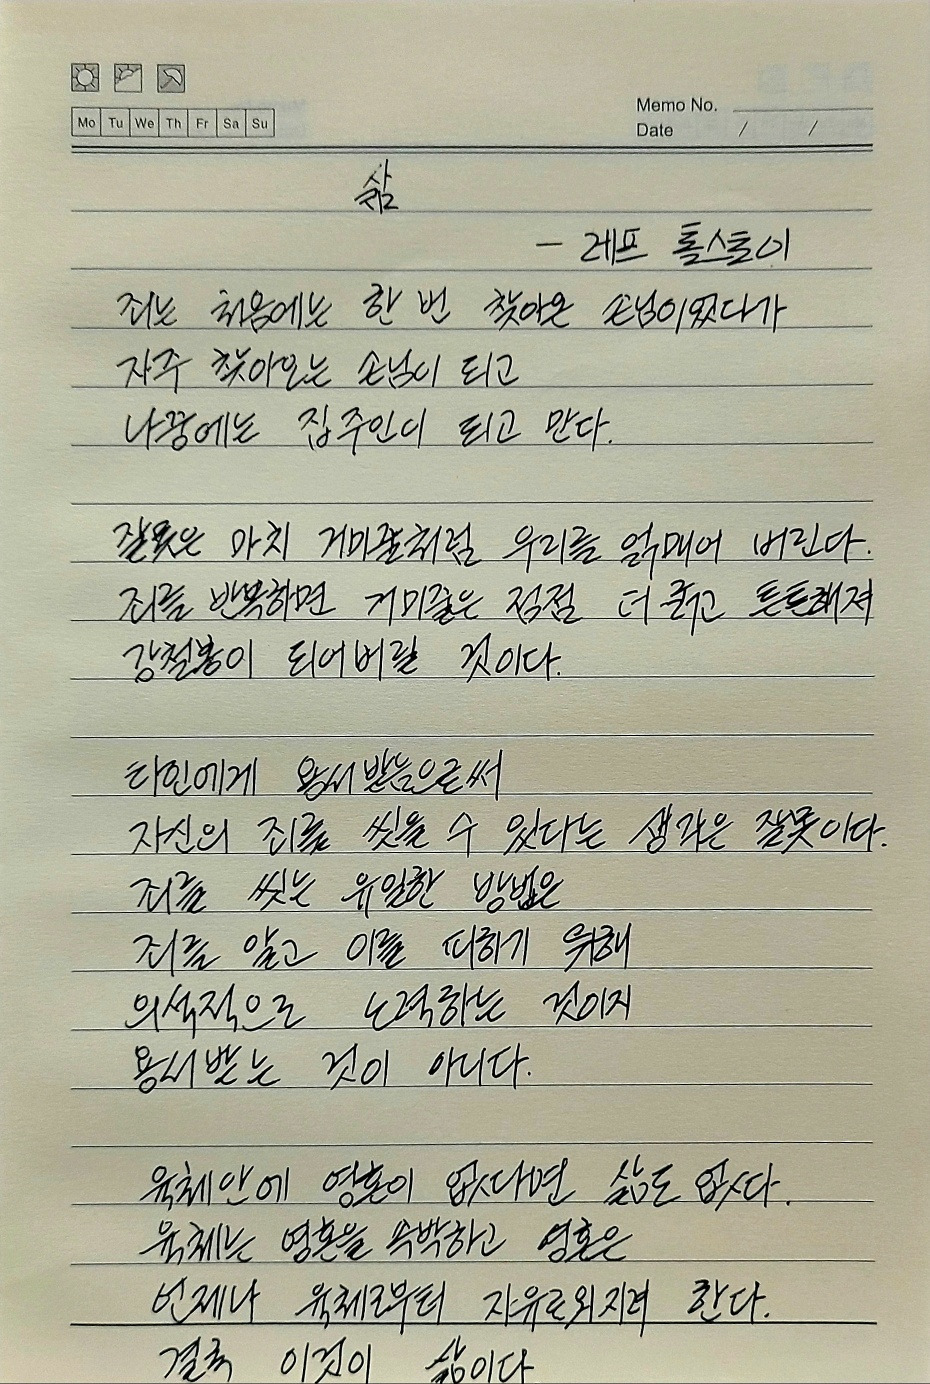 Memo No.
Mo Tu We Th Fr Sa Su
Date / /
삶
- 레프 톨스토이
죄는 처음에는 한 번 찾아온 손님이었다가
자주 찾아오는 손님이 되고
나중에는 집주인이 되고 만다.
잘못은 마치 거미줄처럼 우리를 얽매어 버린다.
죄를 반복하면 거미줄은 점점 더 굵고 튼튼해져
강철봉이 되어버릴 것이다.
타인에게 용서받음으로써
자신의 죄를 씻을 수 있다는 생각은 잘못이다.
죄를 씻는 유일한 방법은
죄를 알고 이를 피하기 위해
의식적으로 노력하는 것이지
용서받는 것이 아니다.
육체안에 영혼이 없다면 삶도 없다.
육체는 영혼을 속박하고 영혼은
언제나 육체로부터 자유로워지려 한다.
결국 이것이 삶이다